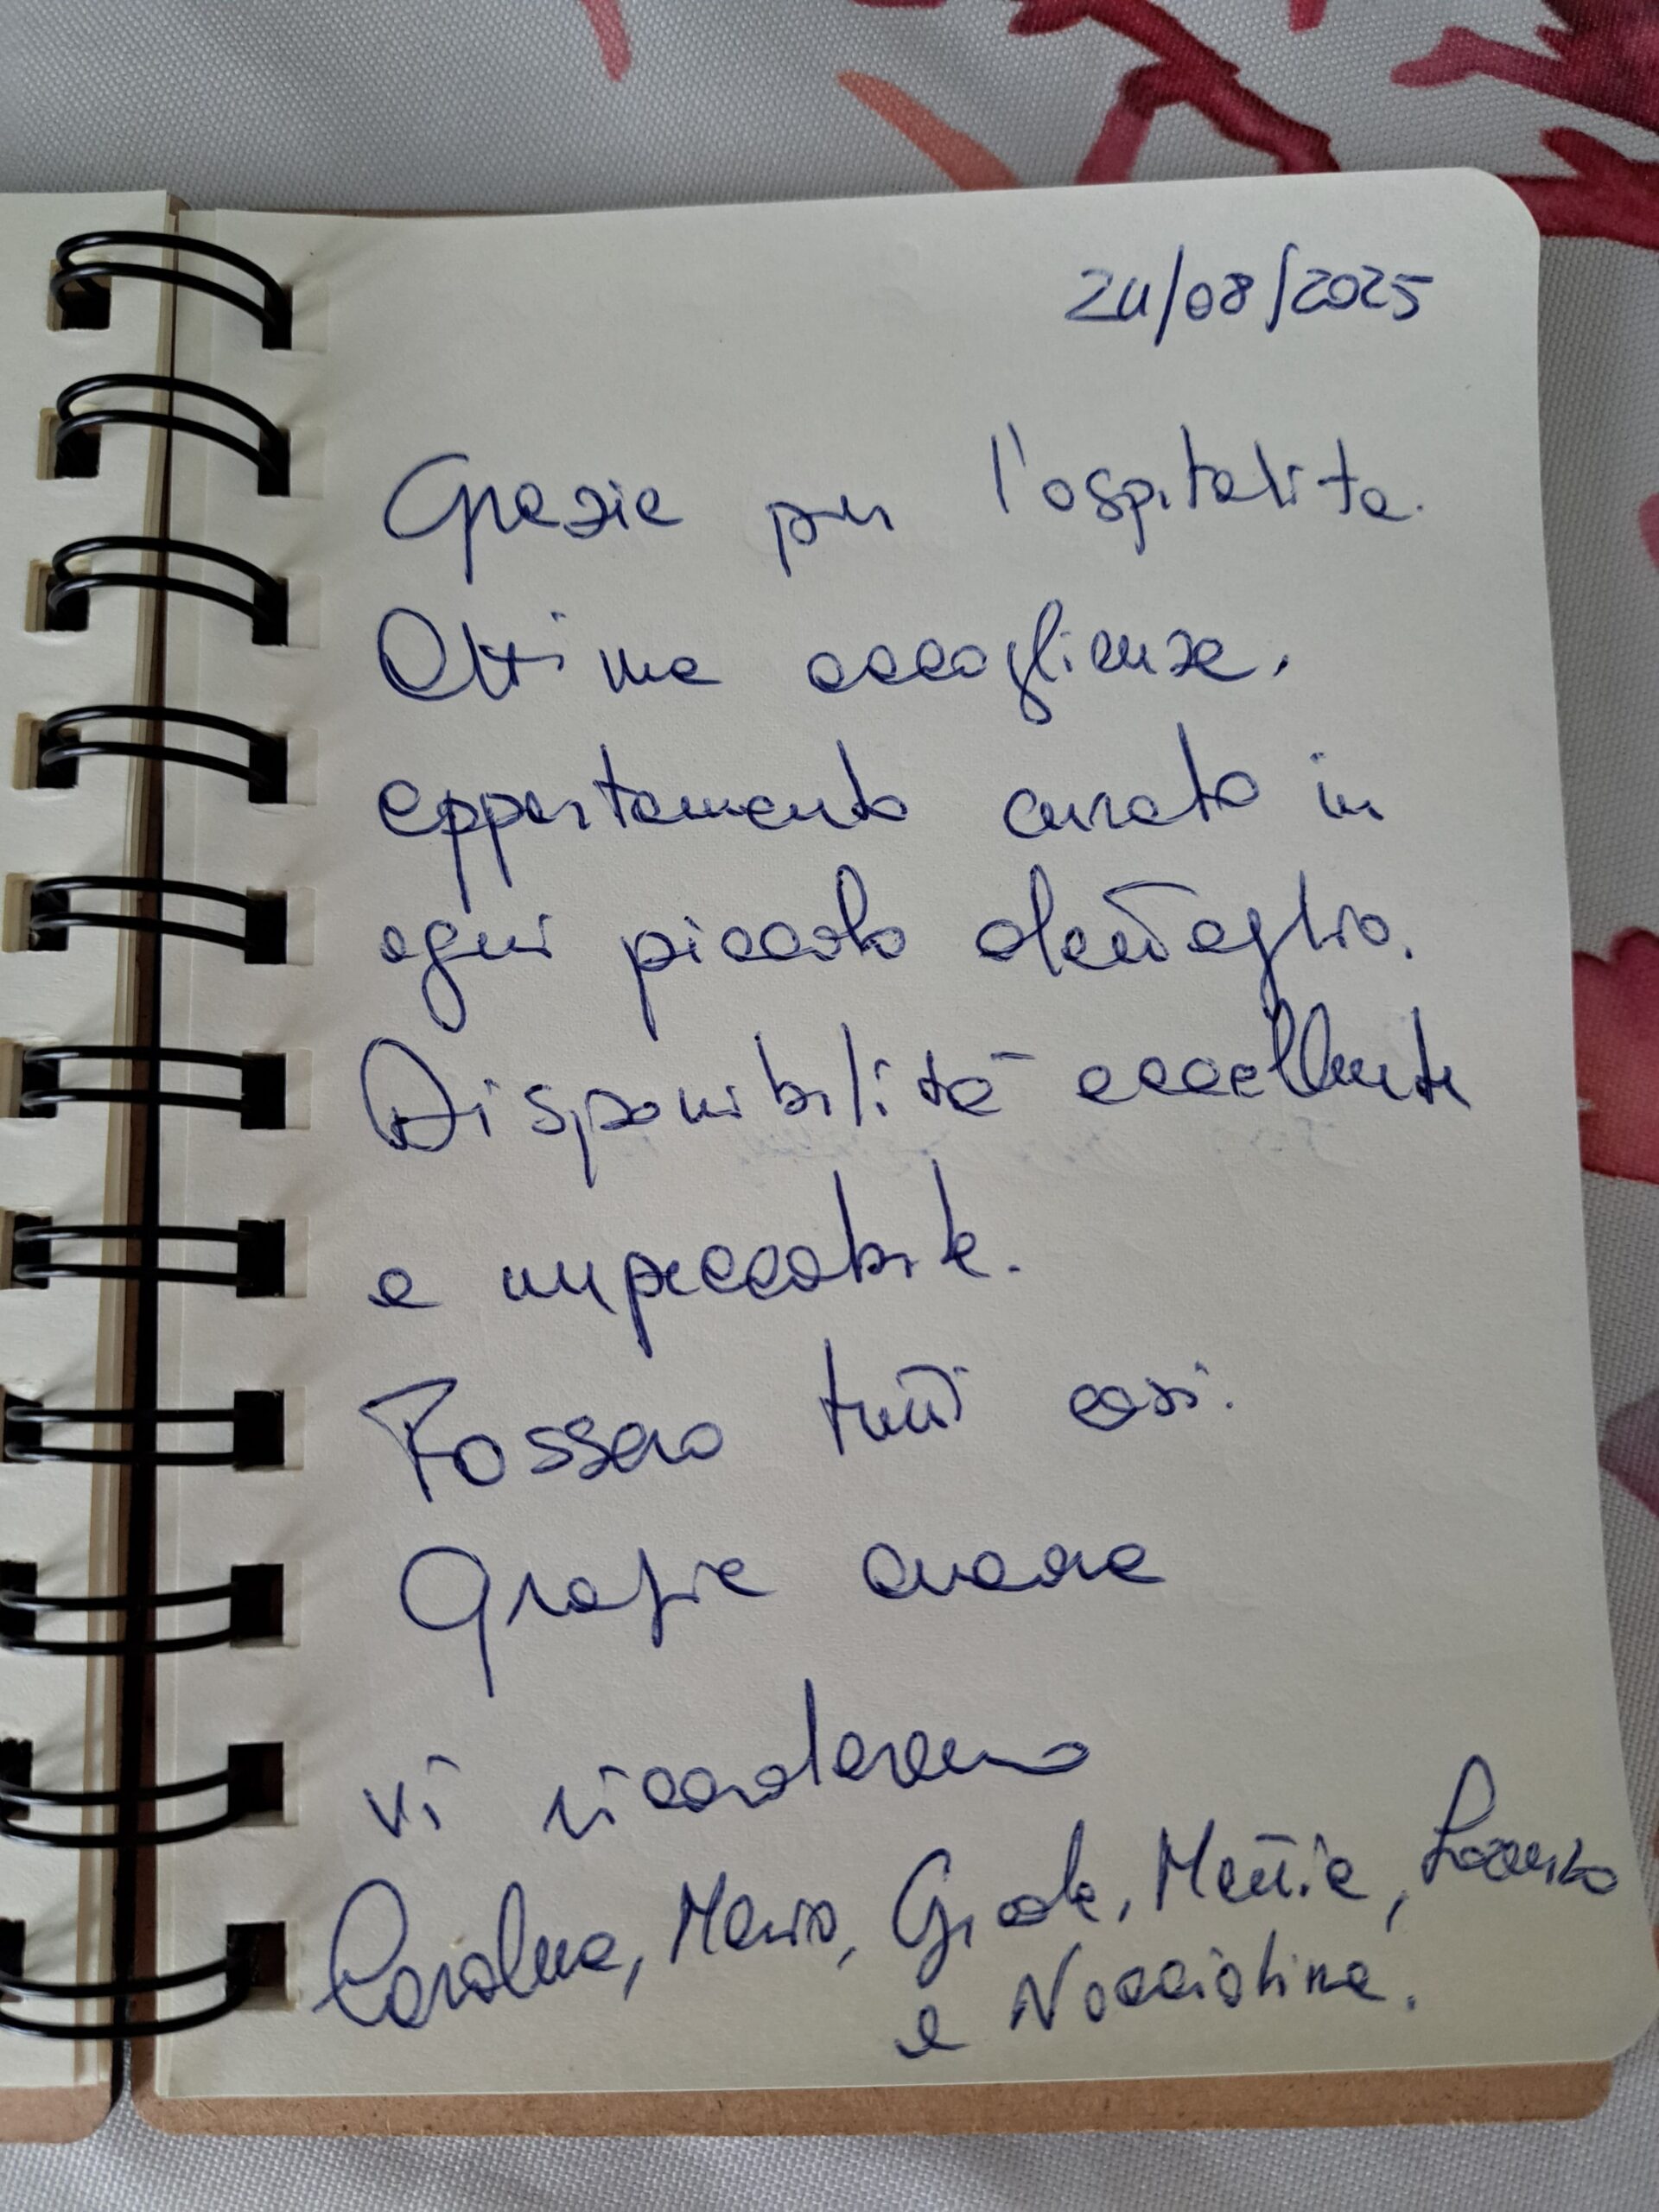 24/08/2025
Grazie per l'ospitalità.
Ottima accoglienza,
appartamento curato in
ogni piccolo dettaglio.
Disponibilità eccellente
e impeccabile.
Fossero tutti così.
Grazie ancora
vi ricorderemo
Carolina, Mario, Giada, Mattia,
e Nocciolina.